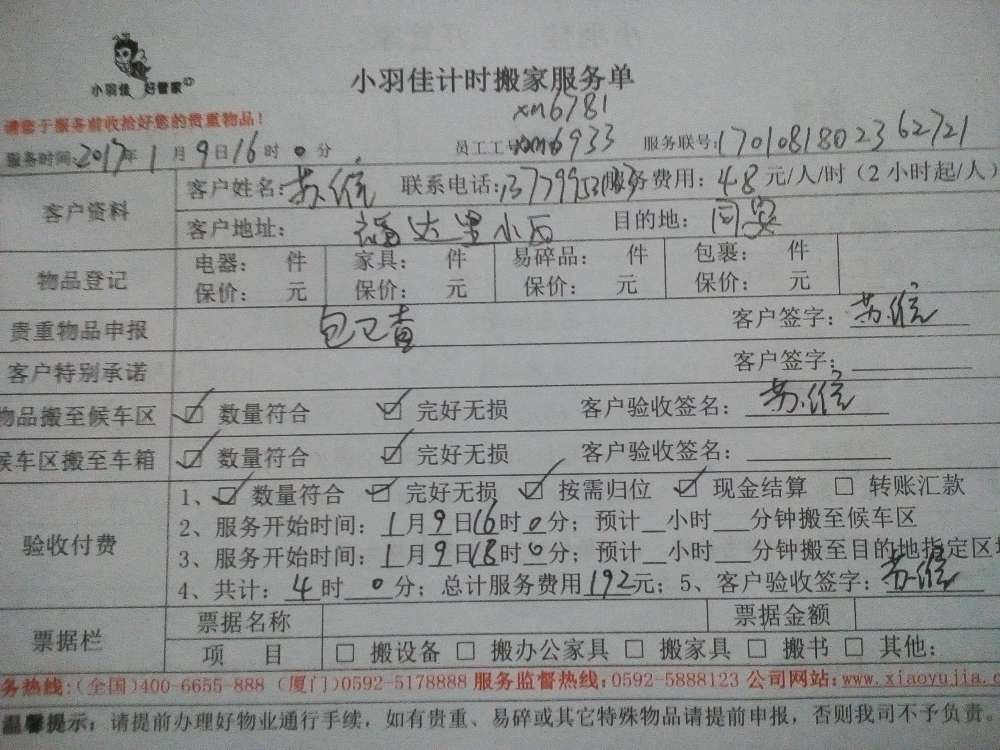 小羽佳 好管家
小羽佳计时搬家服务单
xm6781
请您于服务前收拾好您的贵重物品!
服务时间:2017年1月9日16时0分 员工工号 xm6933 服务联号:1701081802362721
客户资料 客户姓名: 苏 联系电话: 服务费用:48元/人/时(2小时起/人)
客户地址: 福达里小区 目的地: 同安
物品登记 电器: 件 家具: 件 易碎品: 件 包裹: 件
保价: 元 保价: 元 保价: 元 保价: 元
贵重物品申报 包已查 客户签字: 苏
客户特别承诺 客户签字:
物品搬至候车区 ☑ 数量符合 ☑ 完好无损 客户验收签名: 苏
候车区搬至车箱 ☑ 数量符合 ☑ 完好无损 客户验收签名:
验收付费 1、☑ 数量符合 ☑ 完好无损 ☑ 按需归位 ☑ 现金结算 □ 转账汇款
2、服务开始时间:1月9日16时0分;预计__小时___分钟搬至候车区
3、服务开始时间:1月9日18时0分;预计__小时___分钟搬至目的地指定区
4、共计:4时0分;总计服务费用192元;5、客户验收签字: 苏
票据栏 票据名称 票据金额
项 目 □ 搬设备 □ 搬办公家具 □ 搬家具 □ 搬书 □ 其他:
务热线:(全国)400-6655-888 (厦门)0592-5178888 服务监督热线:0592-5888123 公司网站:www.xiaoyujia.c
温馨提示:请提前办理好物业通行手续,如有贵重、易碎或其它特殊物品请提前申报,否则我司不予负责。